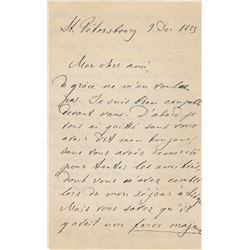 St. Pétersbourg 9 Dec 1885
Mon cher ami,
De grâce ne m'en voulez
pas. Je suis bien coupable
devant vous. D'abord je
vous ai quitté sans vous
avoir dit mon bonjour,
sans vous avoir remercié
pour toutes les amitiés,
dont vous m'avez comblé
lors de mon séjour à Liège
Mais vous savez qu'il
y avait une force maj